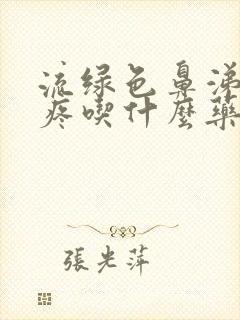 流绿色鼻涕
疼喫什麼藥
張光萍